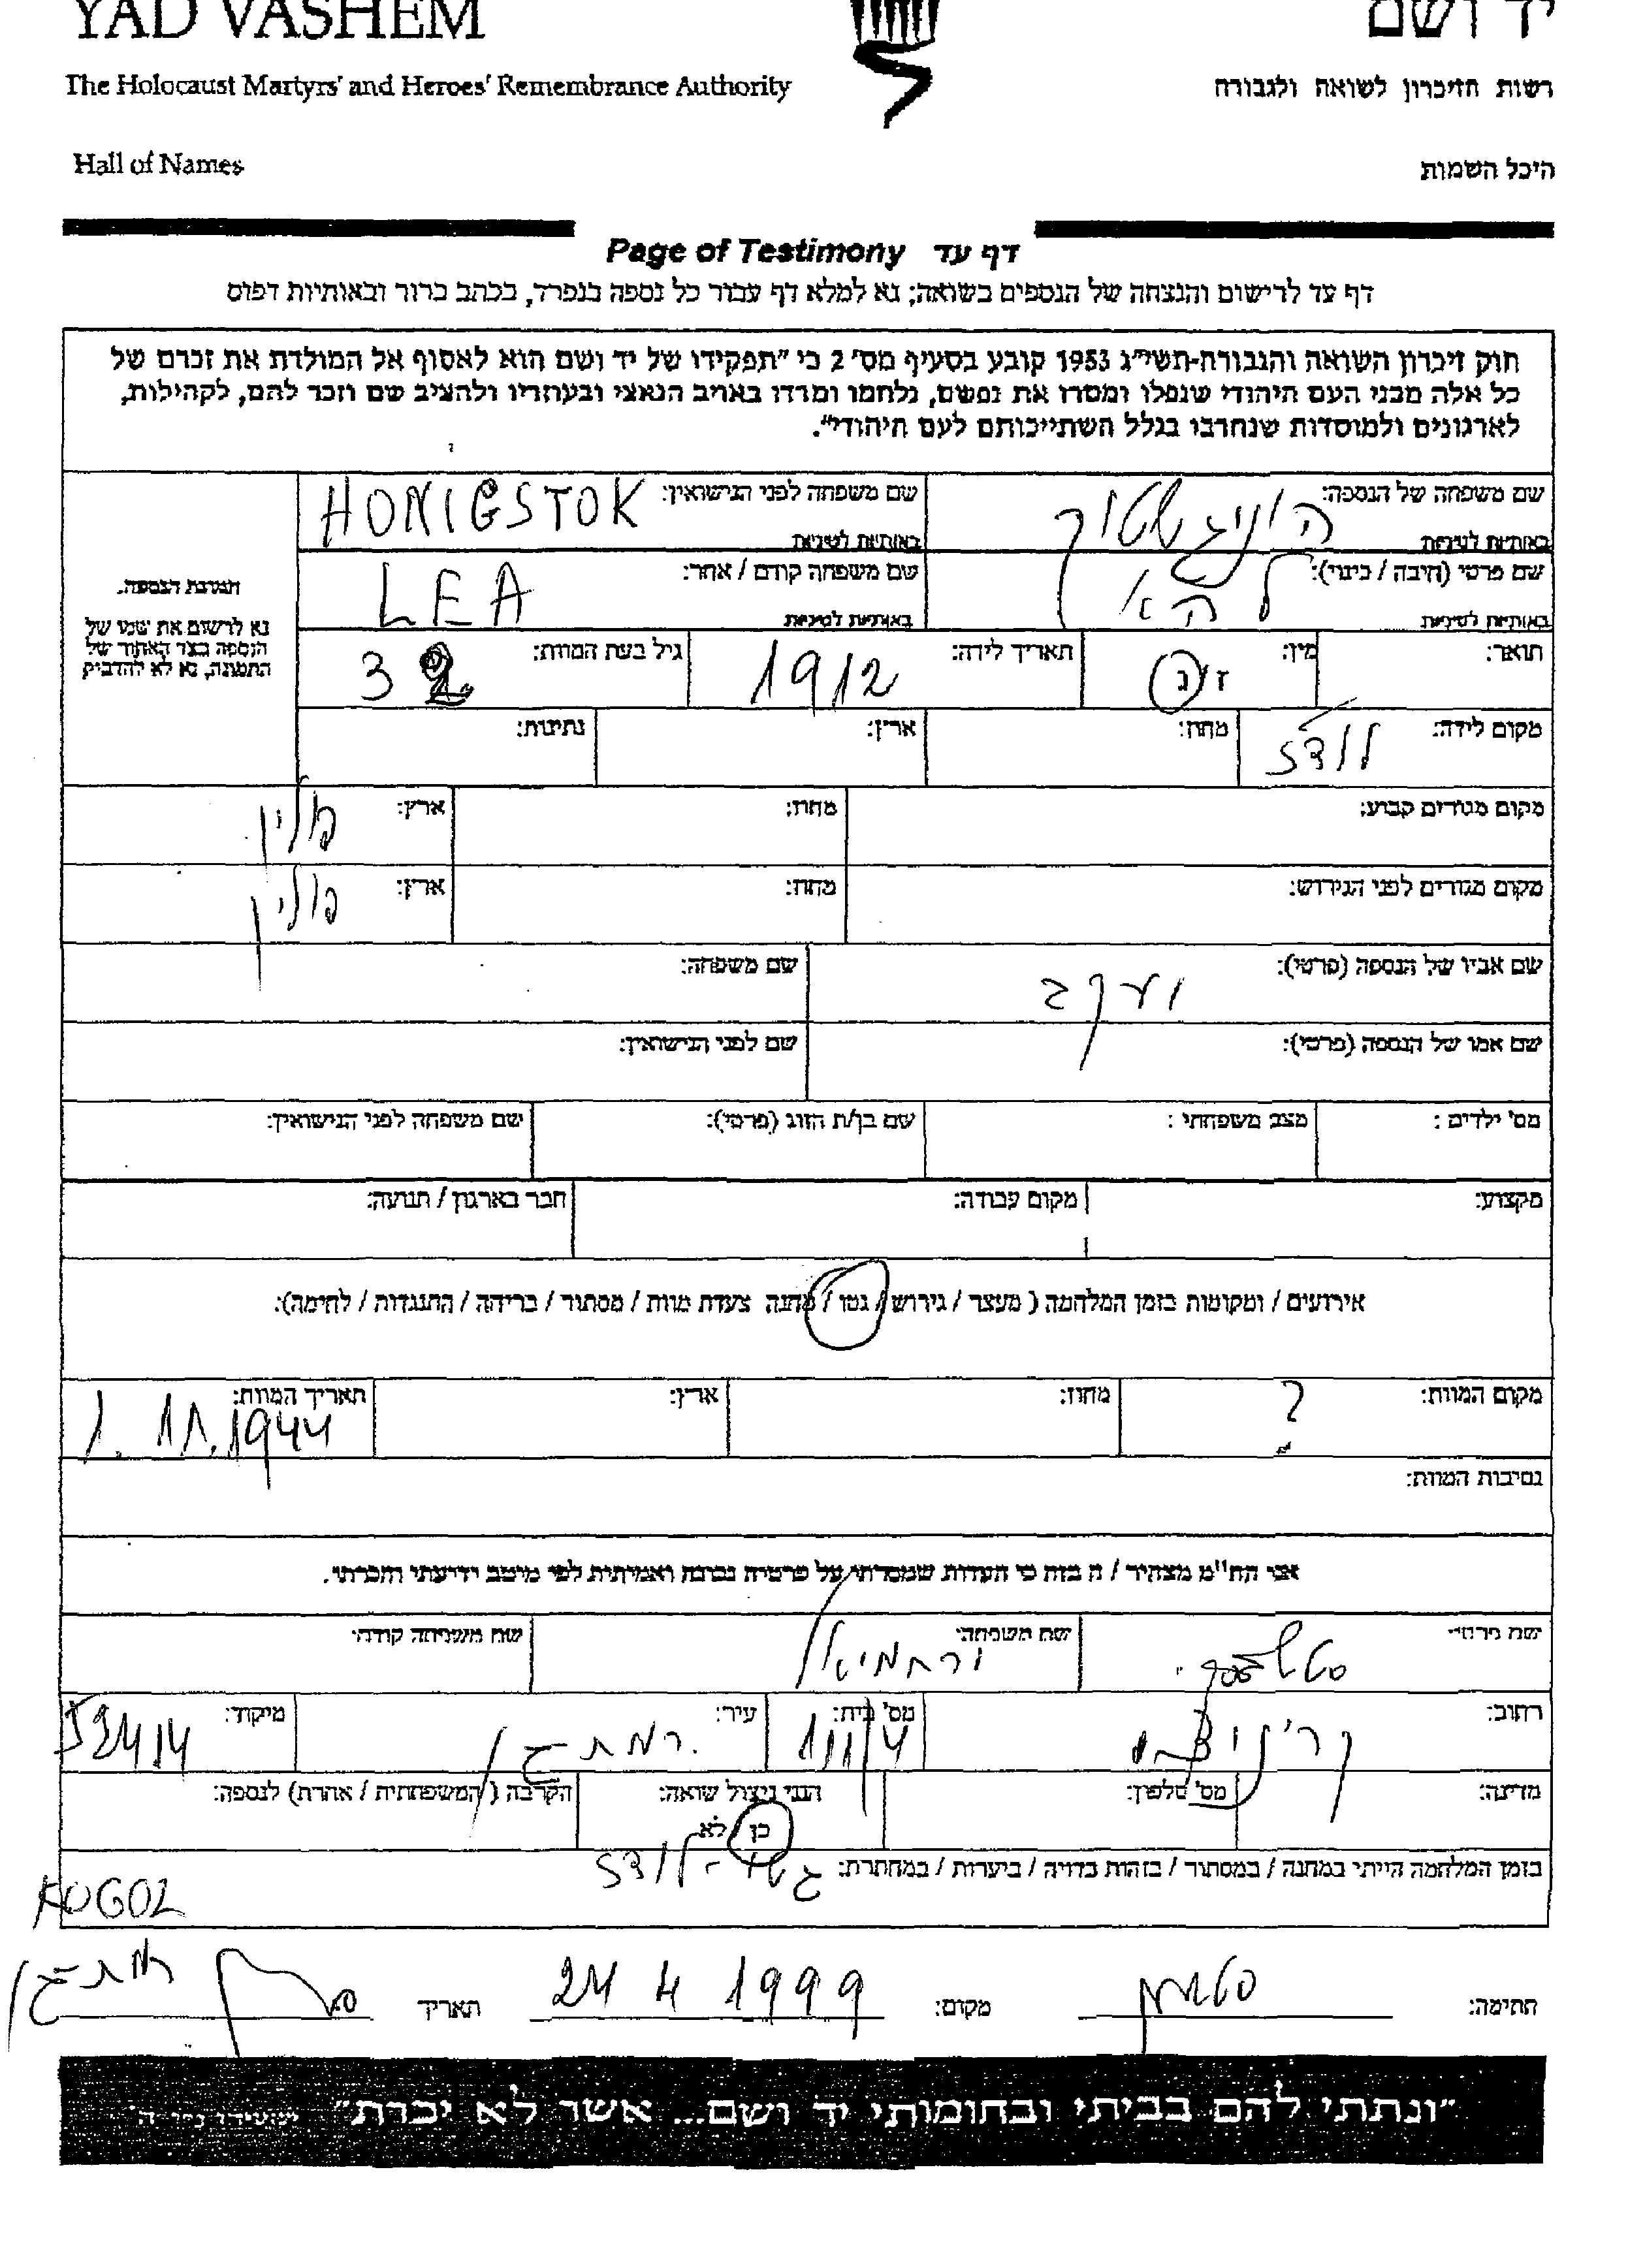 YAD VASHEM יד ושם
The Holocaust Martyrs' and Heroes' Remembrance Authority רשות הזיכרון לשואה ולגבורה
Hall of Names היכל השמות
Page of Testimony דף עד
דף עד לרישום והנצחה של הנספים בשואה; נא למלא דף עבור כל נספה בנפרד, בכתב ברור ובאותיות דפוס
חוק זיכרון השואה והגבורה-תשי"ג 1953 קובע בסעיף מס' 2 כי "תפקידו של יד ושם הוא לאסוף אל המולדת את זכרם של
כל אלה מבני העם היהודי שנפלו ומסרו את נפשם, נלחמו ומרדו באויב הנאצי ובעוזריו ולהציב שם וזכר להם, לקהילות,
לארגונים ולמוסדות שנחרבו בגלל השתייכותם לעם היהודי".
שם משפחה של הנספה: הוניגשטוק שם משפחה לפני הנישואין: HONIGSTOK
באותיות לטיניות באותיות לטיניות
שם פרטי (חיבה / כינוי): לאה שם משפחה קודם / אחר: LEA
באותיות לטיניות באותיות לטיניות
תמונת הנספה.
נא לרשום את שמו של
הנספה בצד האחור של
התמונה, נא לא להדביק
תואר: מין: ז / נ תאריך לידה: 1912 גיל בעת המוות: 32
מקום לידה: לודז מחוז: ארץ: נתינות:
מקום מגורים קבוע: מחוז: ארץ: פולין
מקום מגורים לפני הגירוש: מחוז: ארץ: פולין
שם אביו של הנספה (פרטי): יעקב שם משפחה:
שם אמו של הנספה (פרטי): שם לפני הנישואין:
מס' ילדים : מצב משפחתי : שם בן/ת הזוג (פרטי): שם משפחה לפני הנישואין:
מקצוע: מקום עבודה: חבר בארגון / תנועה:
אירועים / ומקומות בזמן המלחמה ( מעצר / גירוש / גטו / מחנה צעדת מוות / מסתור / בריחה / התנגדות / לחימה):
מקום המוות: ? מחוז: ארץ: תאריך המוות: 1. 11. 1944
נסיבות המוות:
אני הח"מ מצהיר / ה בזה כי העדות שמסרתי על פרטיה נכונה ואמיתית לפי מיטב ידיעתי והכרתי.
שם פרטי שם משפחה: ירחמיאל שם משפחה קודם:
רחוב: קריניצי מס' בית: 111/4 עיר: רמת גן מיקוד: 52414
מדינה: מס' טלפון: הנני ניצול שואה: כן / לא הקרבה ( המשפחתית / אחרת) לנספה:
בזמן המלחמה הייתי במחנה / במסתור / בזהות בדויה / ביערות / במחתרת: גטו - לודז
חתימה: מקום: 24 4 1999 תאריך רמת גן
"ונתתי להם בביתי ובחומותי יד ושם... אשר לא יכרת"